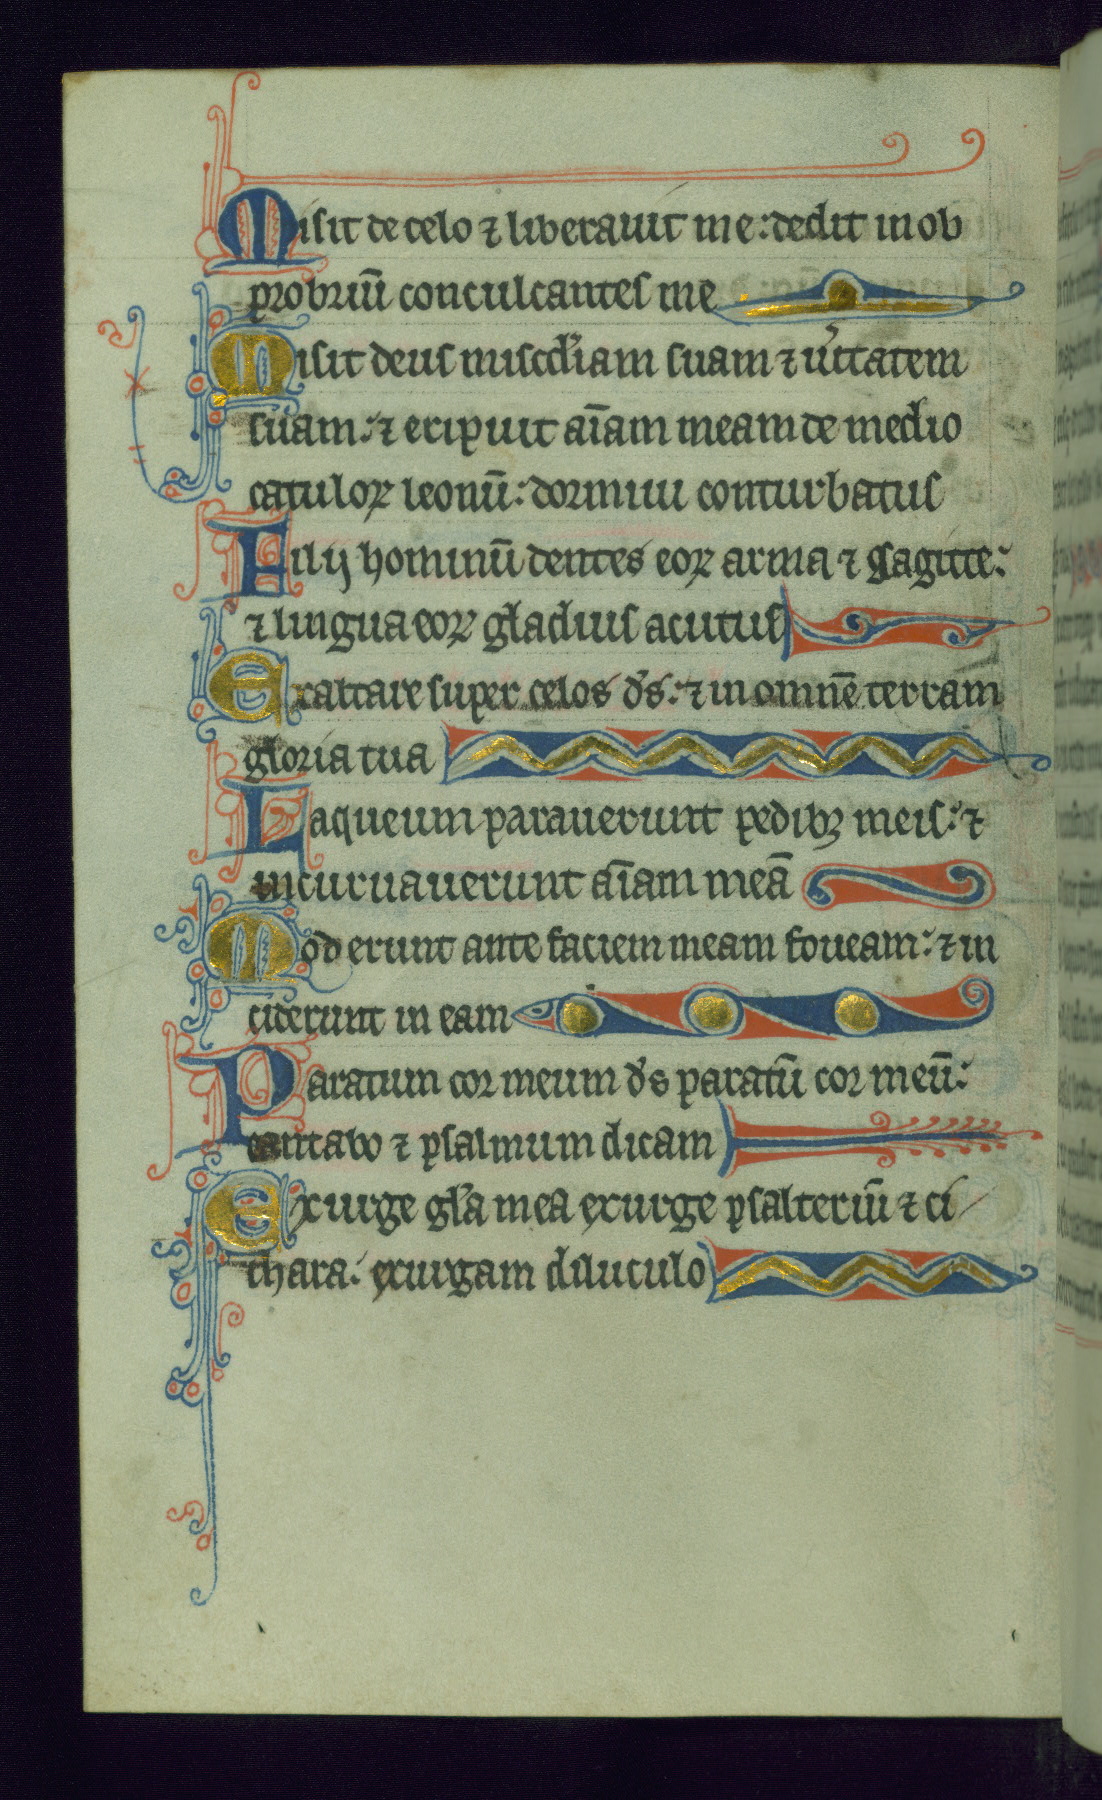 Misit de celo ⁊ liberauit me: dedit in ob
probriū conculcantes me
Misit deus misc̄diam suam ⁊ uͥtatem
suam: ⁊ eripuit aīam meam de medio
catuloꝝ leonū: dormiui conturbatus
Filij hominū dentes eoꝝ arma ⁊ sagitte:
⁊ lingua eoꝝ gladius acutus
Exaltare super celos d̄s: ⁊ in omnē terram
gloria tua
Laqueum parauerunt pedibꝫ meis: ⁊
incuruauerunt aīam meā
Foderunt ante faciem meam foueam: ⁊ in
ciderunt in eam
Paratum cor meum d̄s paratū cor meū:
cantabo ⁊ psalmum dicam
Exurge gl̄a mea exurge psalteriū ⁊ ci
thara: exurgam diluculo